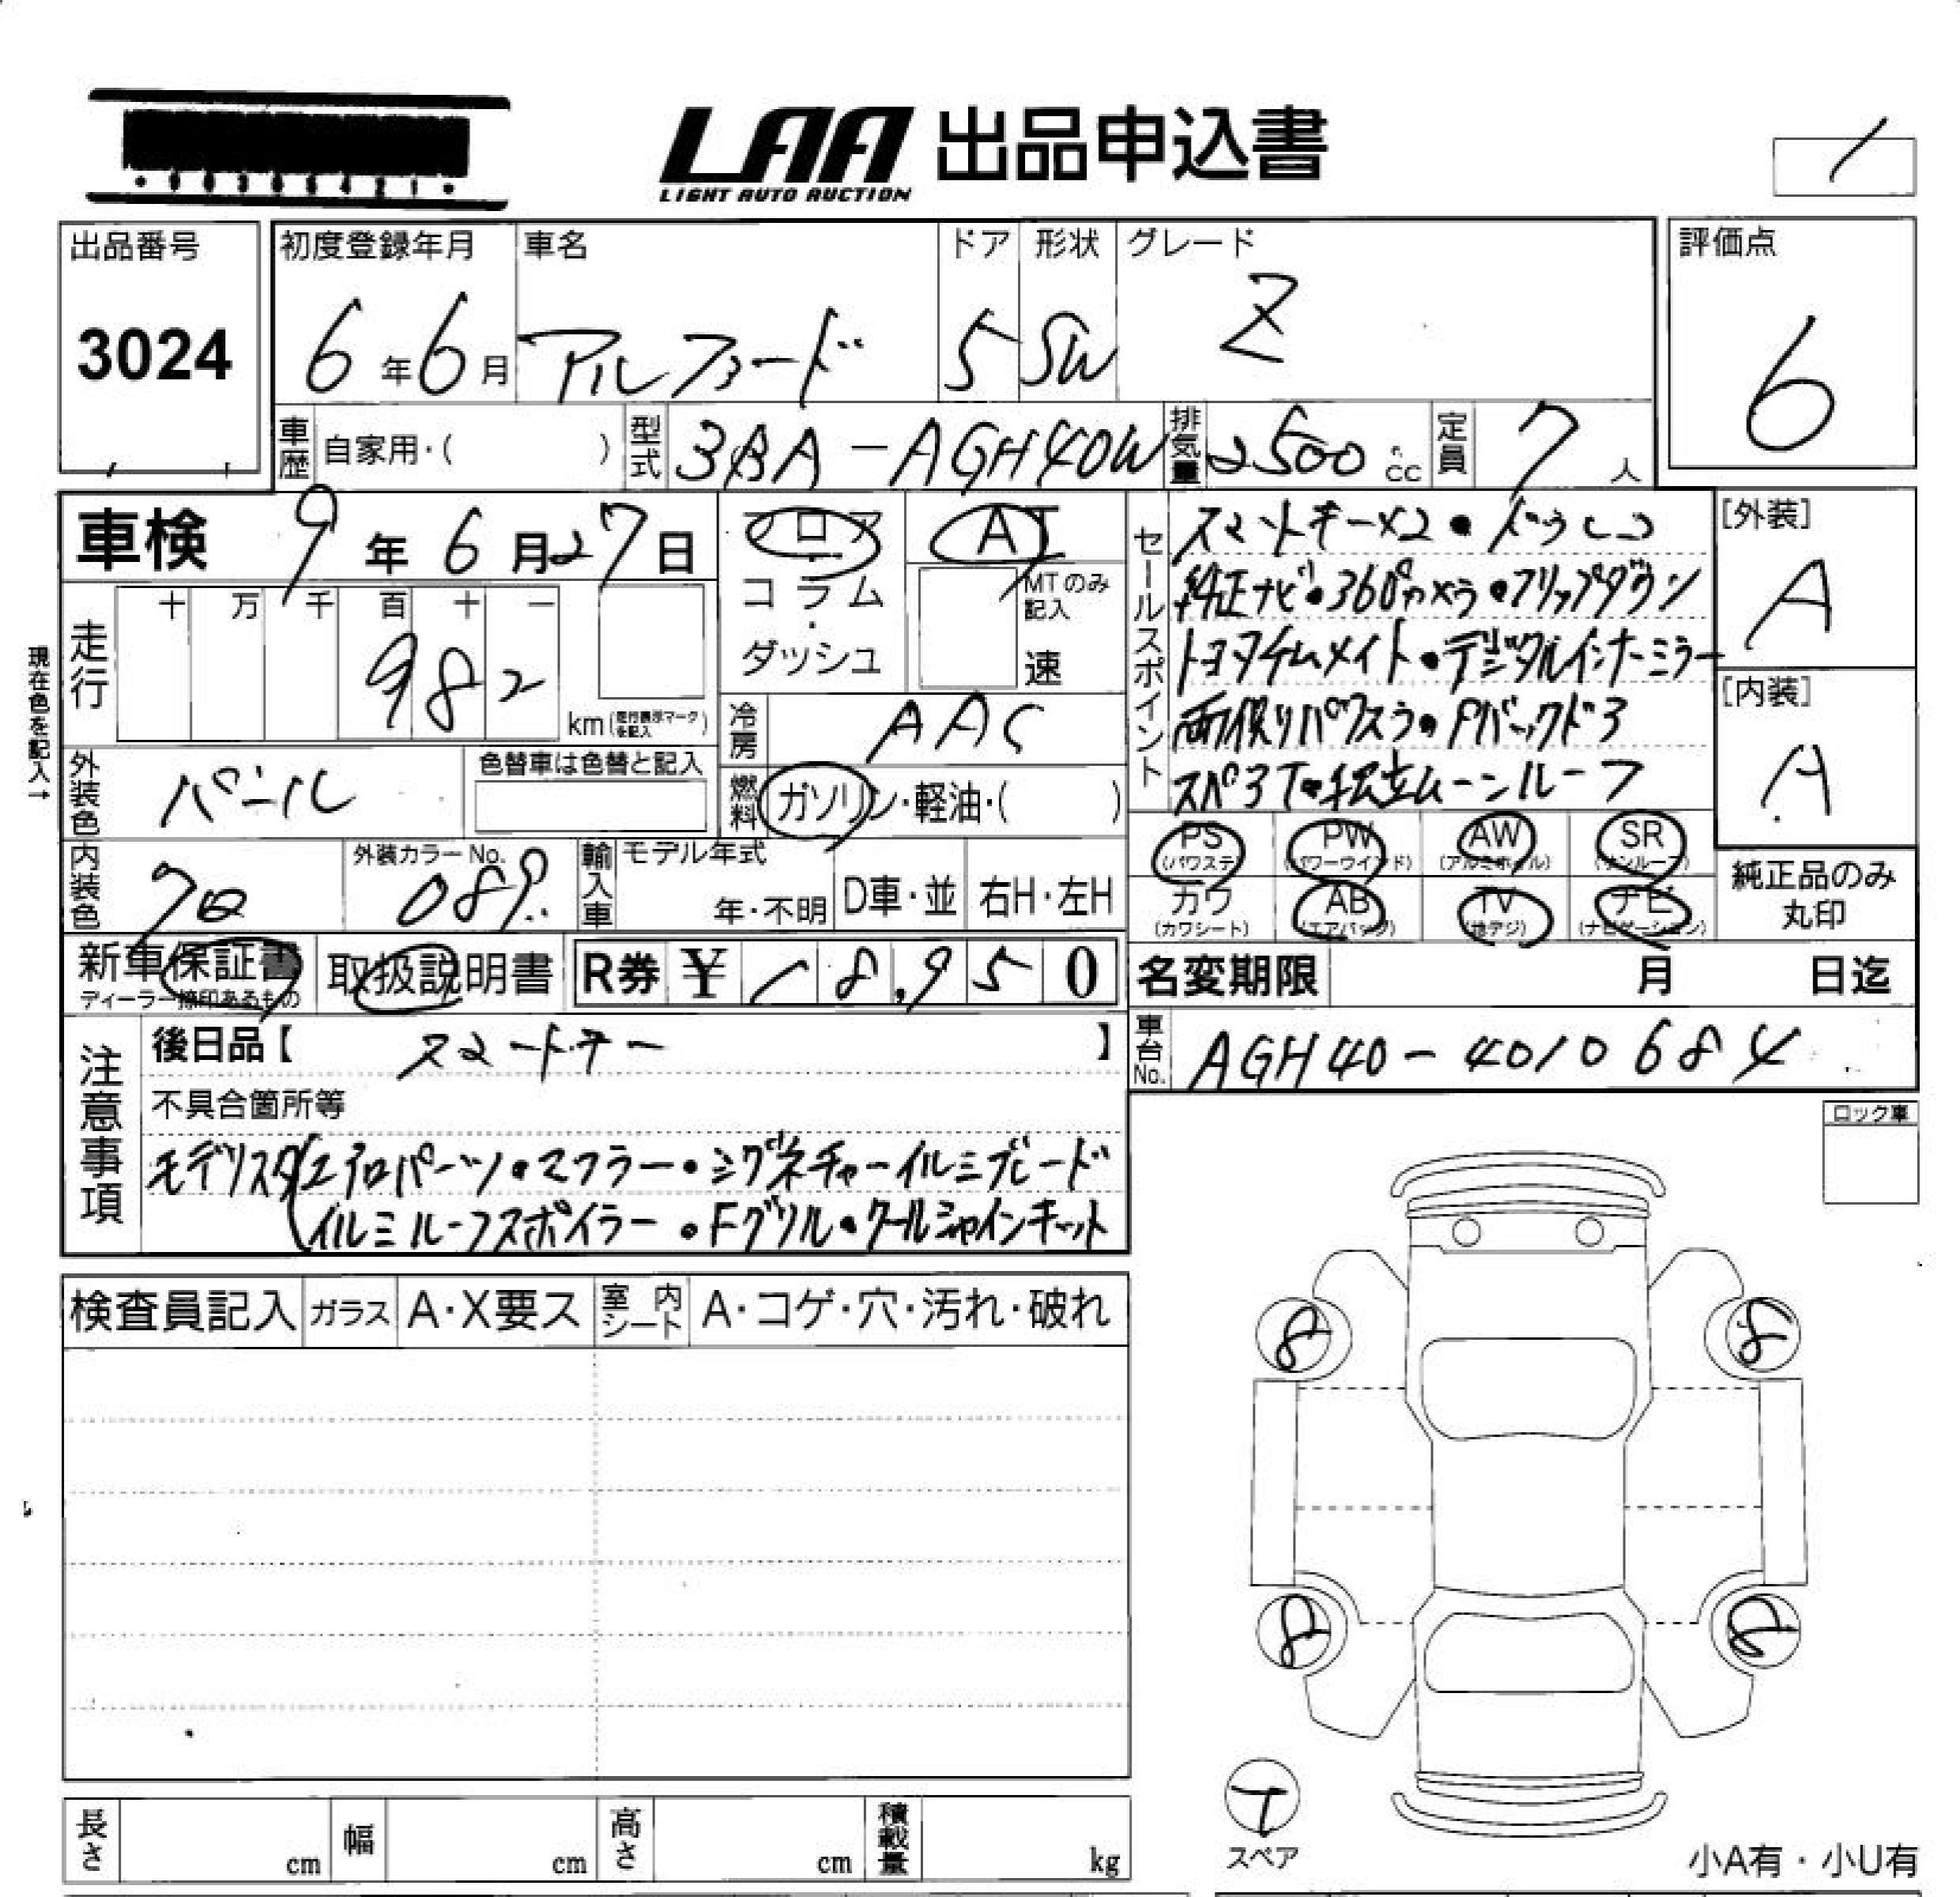 LAA 出品申込書
LIGHT AUTO AUCTION
出品番号
3024
初度登録年月
6年6月
車名
アルファード
ドア
5
形状
SW
グレード
Z
評価点
6
車歴 自家用・( )
型式 3BA-AGH40W
排気量 2500 cc
定員 7人
車検 9年6月27日
フロア・コラム・ダッシュ
AT
MTのみ記入
速
セールスポイント
スマートキー×2・ドラレコ
純正ナビ・360°カメラ・フリップダウン
トヨタチムメイト・デジタルインナーミラー
両側リパワスラ・Pバックドア
スペアT・独立ムーンルーフ
[外装]
A
[内装]
A
現在色を記入→
走行
十 万 千 百 十 一
982
km(走行表示マークを記入)
冷房 AAC
外装色 パール
色替車は色替と記入
燃料 ガソリン・軽油・( )
内装色 クロ
外装カラーNo. 089
輸入車 モデル年式
年・不明
D車・並
右H・左H
PS (パワステ)
PW (パワーウインド)
AW (アルミホイル)
SR (サンルーフ)
カワ (カワシート)
AB (エアバッグ)
TV (地デジ)
ナビ (ナビゲーション)
純正品のみ丸印
新車保証書
ディーラー捺印あるもの
取扱説明書
R券 ¥18,950
名変期限 月 日迄
車台No. AGH40-4010684
注意事項
後日品【 スマートキー 】
不具合箇所等
モデリスタ(エアロパーツ・マフラー・シグネチャーイルミブレード
イルミルーフスポイラー・Fグリル・クールシャインキット
ロック車
検査員記入
ガラス A・X要ス
室内シート A・コゲ・穴・汚れ・破れ
8
8
8
8
T
スペア
長さ cm
幅 cm
高さ cm
積載量 kg
小A有・小U有